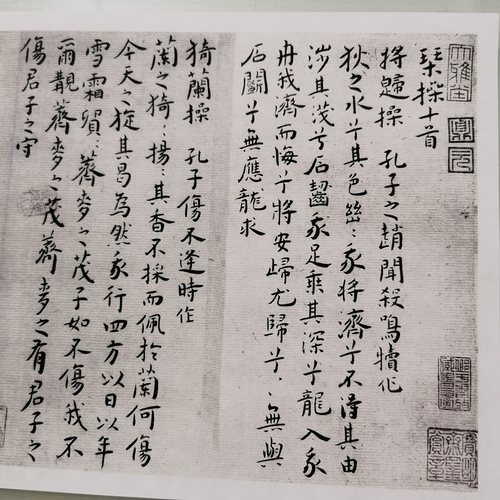 琴操十首
將歸操 孔子之趙聞殺鳴犢作
狄之水兮其色幽〻我將濟兮不得其由
涉其淺兮石齧我足乘其深兮龍入我
舟我濟而悔兮將安歸尤歸兮〻無與
石鬬兮無應龍求
猗蘭操 孔子傷不逢時作
蘭之猗〻揚〻其香不採而佩於蘭何傷
今天之旋其曷為然我行四方以日以年
雪霜貿〻薺麥之茂子如不傷我不
爾覯薺麥之茂薺麥之有君子之
傷君子之守